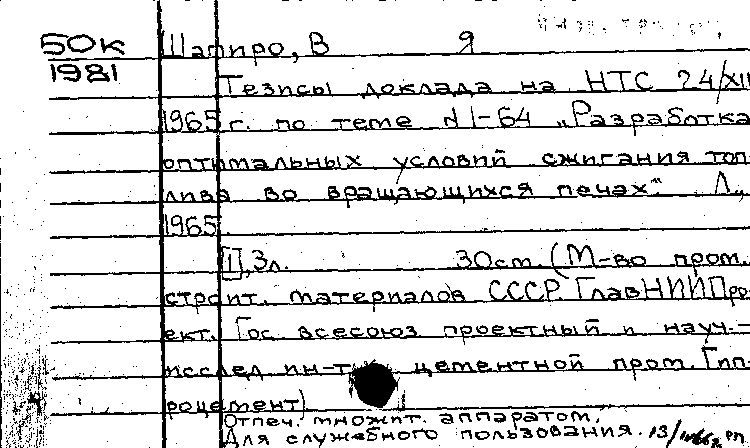 50к
1981
Шапиро, В Я
Тезисы доклада на НТС 24/XII
1965 г. по теме N 1-64 „Разработка
оптимальных условий сжигания топ-
лива во вращающихся печах". Л.,
1965.
[1], 3л. 30 cm. (М-во пром.
строит. материалов СССР. ГлавНИИПро-
ект. Гос. всесоюз проектный и науч.-
исслед ин-т цементной пром. Гип-
роцемент)
Отпеч. множит. аппаратом.
Для служебного пользования. 13/